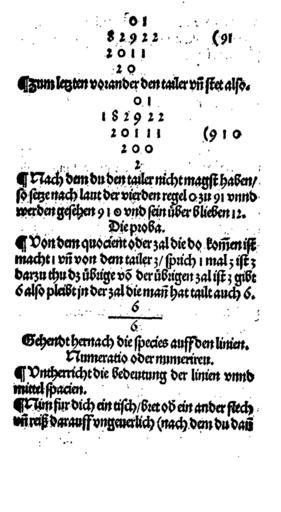 0 1
8 2 9 2 2 (9 1
2 0 1 1
2 0
¶ Zum letzten vorander den tailer vñ stet also.
0 1
1 8 2 9 2 2
2 0 1 1 1 (9 1 0
2 0 0
2
¶ Nach dem du den tailer nicht magst haben/
so setze nach laut der vierden regel 0 zu 91 vnnd
werden gesehen 9 1 0 vnd sein über blieben 12.
Die proba.
¶ Von dem quocient oder zal die do kom̃en ist
macht 1 vñ von dem tailer 3/ sprich 1 mal 3 ist 3
darzu thu dz übrige võ der übrigen zal ist 3 gibt
6 also pleibt in der zal die mañ hat tailt auch 6.
6
6
Gehendt hernach die species auff den linien.
Numeratio oder numerirn.
¶ Vntherricht die bedeutung der linien vnnd
mittel spacien.
¶ Nun für dich ein tisch/bret oð ein ander flech
vñ reiß darauff vngeuerlich (nach dem du dañ